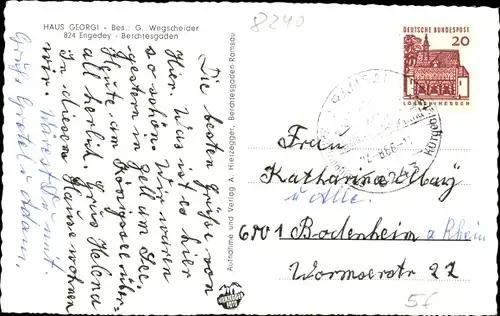 HAUS GEORGI - Bes.: G. Wegscheider
824 Engedey - Berchtesgaden
8240
Die besten Grüße von
hier. Was ist es hier
so schön. Wir waren
gestern in Zell am See
Heute am Königssee über-
all herrlich. Grus Helena
In diesem Hause wohnen
wir. Wärest Du mit
Grüße Gretel u Adam.
Aufnahme und Verlag A. Hierzegger, Berchtesgaden-Ramsau
DEUTSCHE BUNDESPOST
20
LORSCH/HESSEN
RAMSAU
8243
Frau
Katharina May
u Alle.
6501 Bodenheim a Rhein
Wormserstr 22